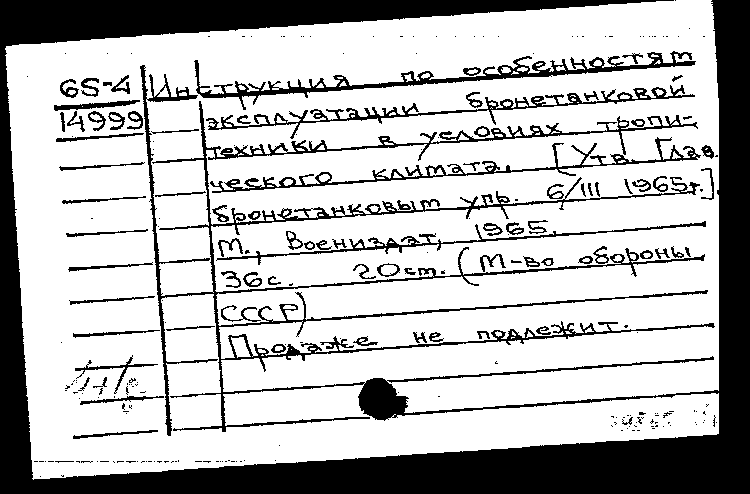 65-4
14999
Инструкция по особенностям
эксплуатации бронетанковой
техники в условиях тропи-
ческого климата. [Утв. Глав.
бронетанковым упр. 6/III 1965г.].
М., Воениздат, 1965.
36с. 20см. (М-во обороны
СССР).
Продаже не подлежит.